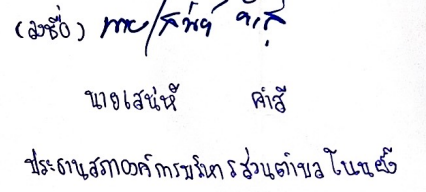 (ลงชื่อ)
นายเสน่ห์ คำสี
ประธานสภาองค์การบริหารส่วนตำบลโนนยัง